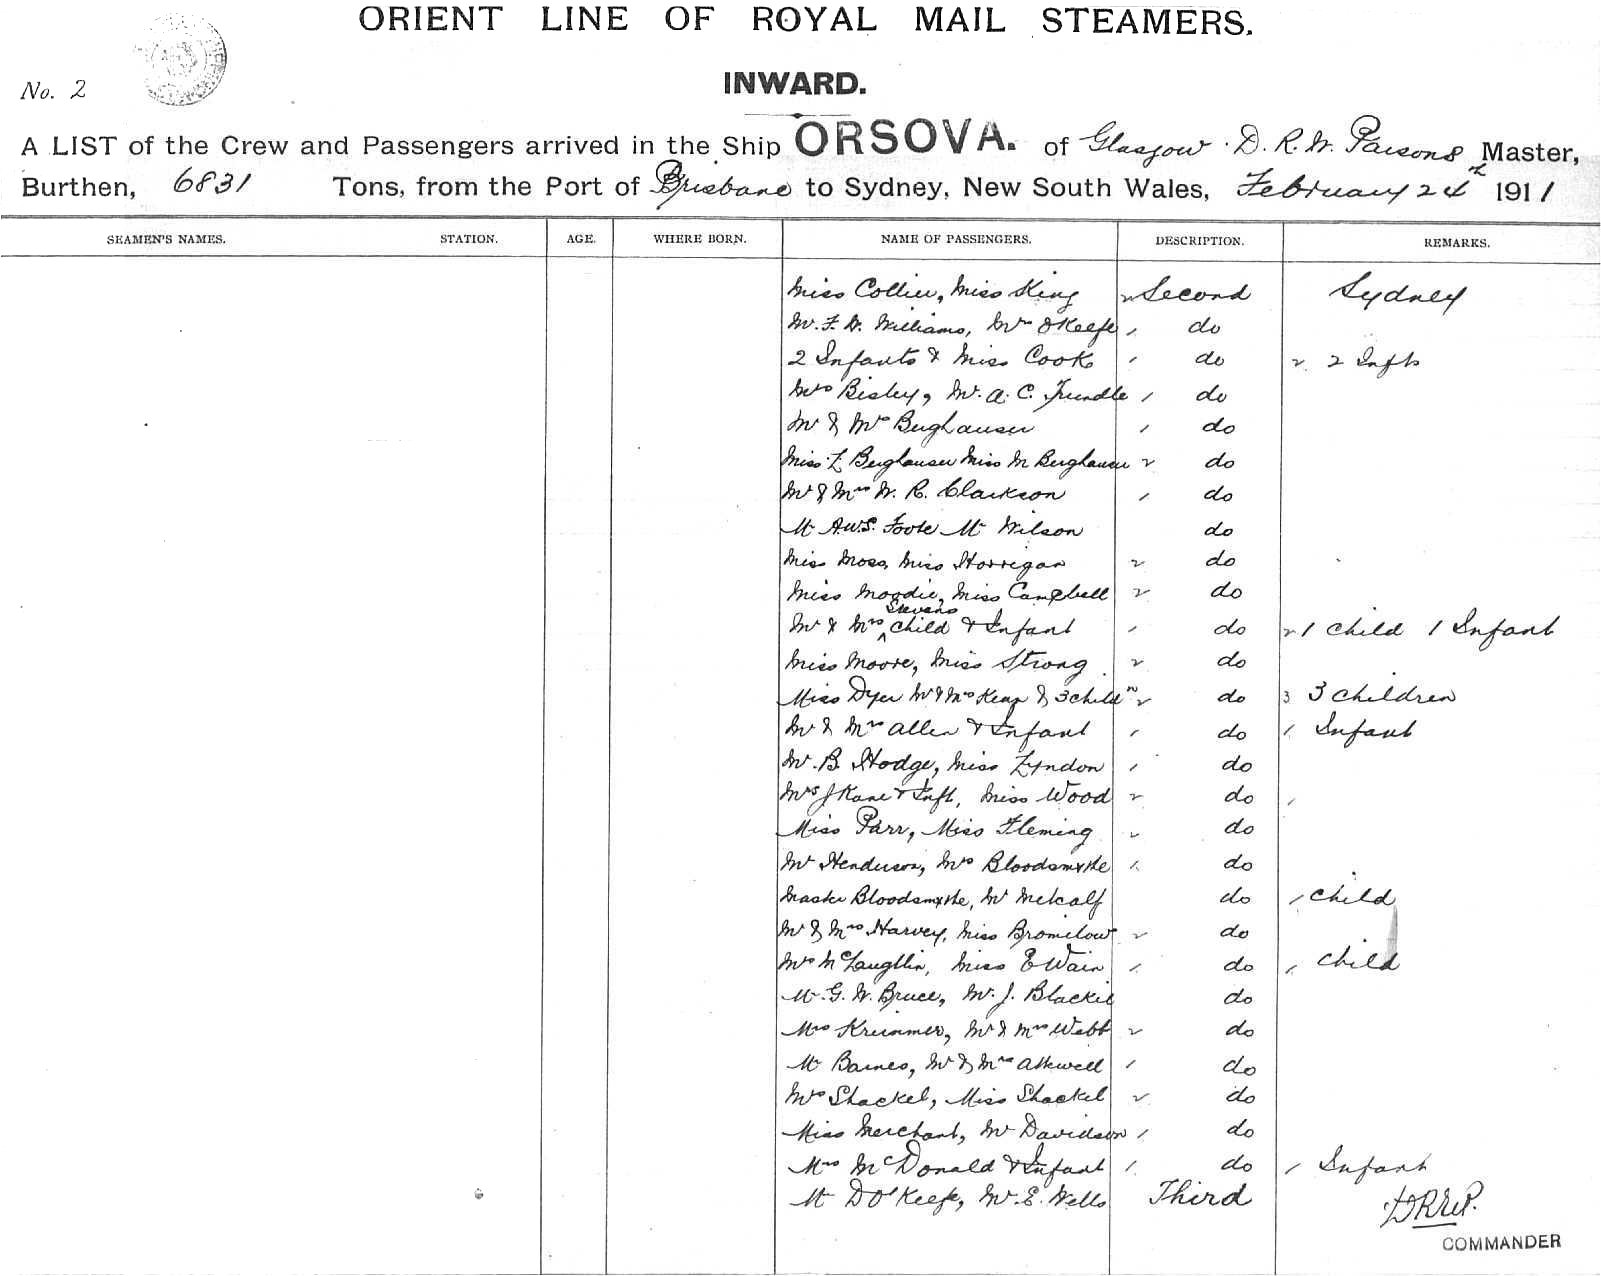 ORIENT LINE OF ROYAL MAIL STEAMERS.
No. 2
INWARD.
A LIST of the Crew and Passengers arrived in the Ship ORSOVA. of Glasgow. D. R. W. Parsons Master,
Burthen, 6831 Tons, from the Port of Brisbane to Sydney, New South Wales, February 24th 1911
SEAMEN'S NAMES. STATION. AGE. WHERE BORN. NAME OF PASSENGERS. DESCRIPTION. REMARKS.
Miss Collier, Miss King 2 Second Sydney
Mr. F. W. Williams, Mrs O'Keefe 1 do
2 Infants & Miss Cook 1 do 2 2 Infts
Mrs Bisley, Mr. A. C. Trundle 1 do
Mr & Mrs Berghauser 1 do
Miss L Berghauser Miss M Berghauser 2 do
Mr & Mrs W. R. Clarkson 1 do
Mr A.W.S. Foote Mr Wilson do
Miss Moss, Miss Horrigan 2 do
Miss Moodie, Miss Campbell 2 do
Mr & Mrs Stevens Child & Infant 1 do 2 1 Child 1 Infant
Miss Moore, Miss Strong 2 do
Miss Dyer Mr & Mrs Kemp & 3 Childn 2 do 3 3 Children
Mr & Mrs Allen & Infant 1 do 1 Infant
Mr. B. Hodge, Miss Lyndon 1 do
Mrs J Kane & Inft, Miss Wood 2 do 1
Miss Parr, Miss Fleming 2 do
Mr Henderson, Mrs Bloodsmythe 1 do
Master Bloodsmythe, Mr Metcalf do 1 Child
Mr & Mrs Harvey, Miss Bromilow 2 do
Mrs McLaughlin, Miss E Wain 1 do 1 Child
Mr. G. W. Bruce, Mr. J. Blackie do
Mrs Krimmer, Mr & Mrs Webb 2 do
Mr Barnes, Mr & Mrs Atkwell 1 do
Mrs Shackel, Miss Shackel 2 do
Miss Merchant, Mr Davidson 1 do
Mrs McDonald & Infant 1 do 1 Infant
Mr D O'Keefe, Mr. E. Wells Third
DRWP.
COMMANDER